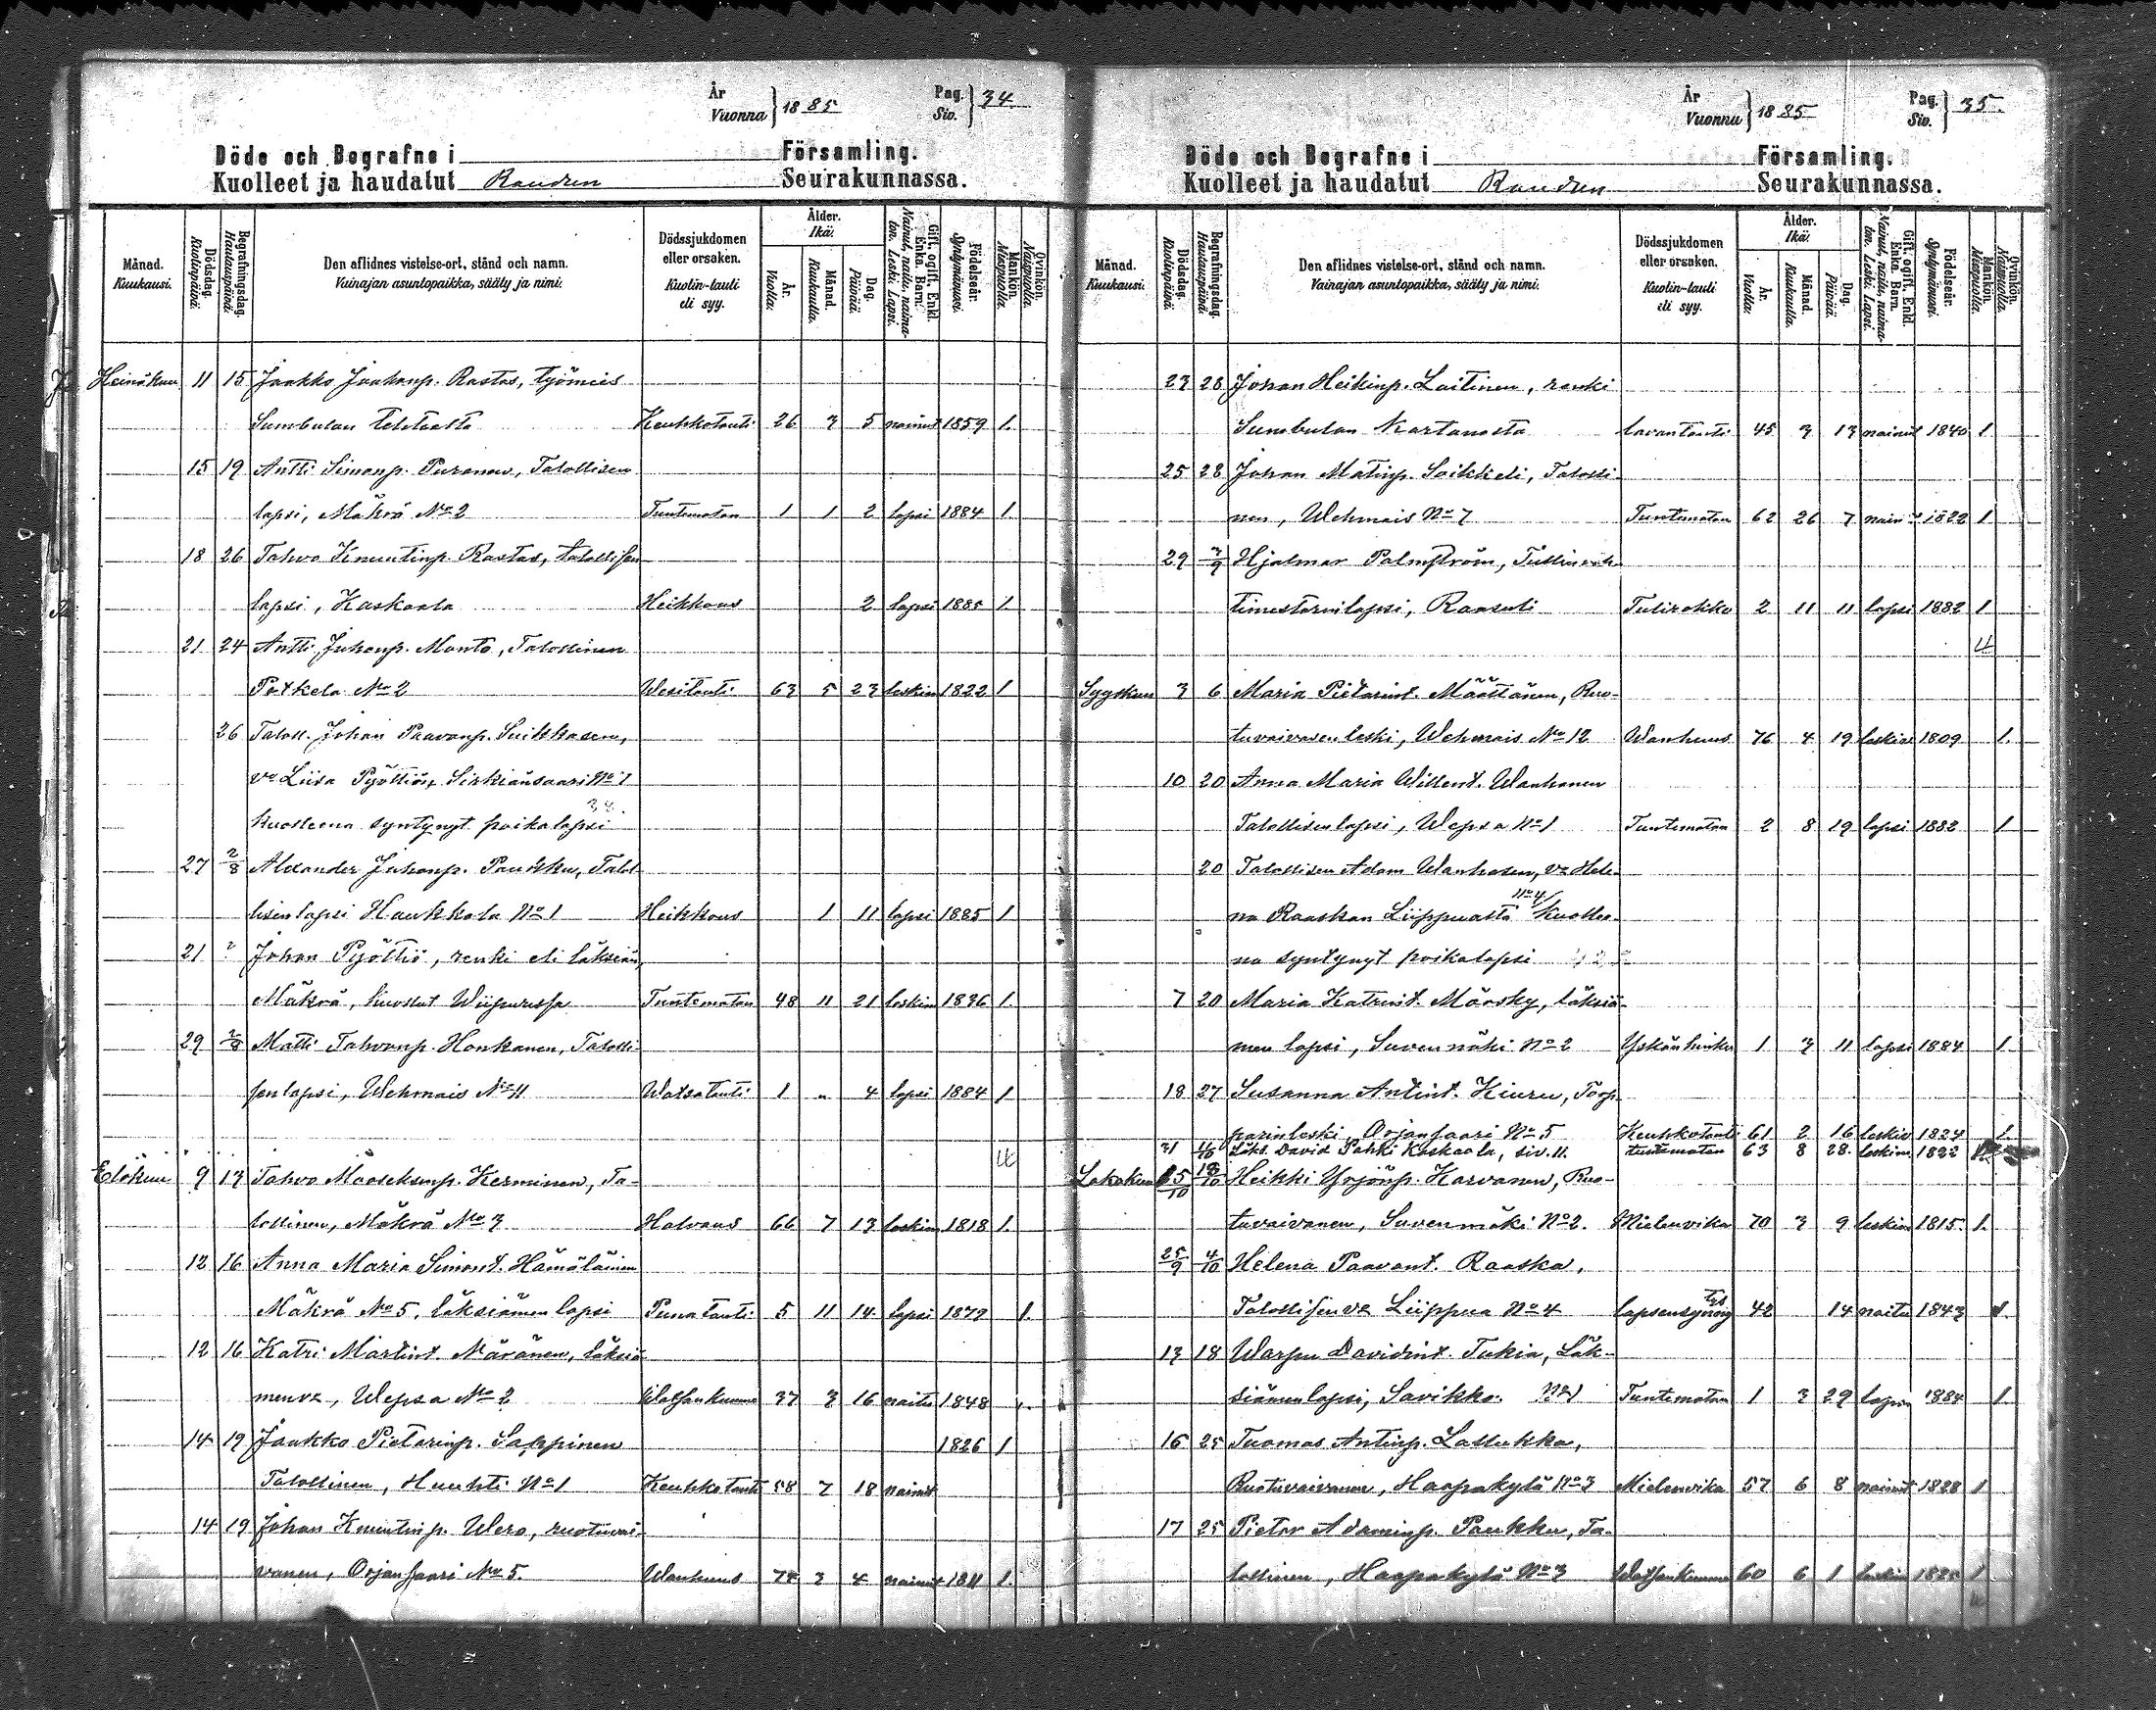 År
Vuonna } 1885
Pag.
Siv. } 34
Döde och Begrafne i Församling.
Kuolleet ja haudatut Raudun Seurakunnassa.
Månad. Kuukausi.
Dödsdag. Kuolinpäivä.
Begrafningsdag. Hautauspäivä.
Den aflidnes vistelse-ort, stånd och namn.
Vainajan asuntopaikka, sääty ja nimi.
Dödssjukdomen eller orsaken.
Kuolin-tauti eli syy.
Ålder. Ikä:
År. Vuotta:
Månad. Kuukautta.
Dag. Päivää.
Gift, ogift, Enkl. Enka. Barn.
Nainut, naitu, naimaton. Leski. Lapsi.
Födelseår. Syntymävuosi.
Mankön. Miespuolia.
Qvinkön. Naispuolia.
Heinäkuu 11 15 Jaakko Jaakonp. Rastas, työmies
Sumbulan tehtaalta Keuhkotauti 26 3 5 nainut 1859 1.
15 19 Antti Simonp. Puronen, Talollisen
lapsi, Mäkrä No 2 Tuntematon 1 1 2 lapsi 1884 1
18 26 Tahvo Knuutinp. Rastas, talollisen
lapsi, Kaskaala Heikkous 2 lapsi 1885 1
21 24 Antti Juhonp. Monto, Talollinen
Potkela No 2 Wesitauti 63 5 23 leskim 1822 1
26 Taloll. Johan Paavonp. Suikkasen,
vo Liisa Pyöttiön, Sirkiänsaari No 1
kuolleena syntynyt poikalapsi
27 2/8 Alexander Juhonp. Paukku, Talol-
lisen lapsi Haukkala No 1 Heikkous 1 11 lapsi 1885 1
21 ? Johan Pyöttiö, renki eli läksiän,
Mäkrä, kuollut Wiipurissa Tuntematon 48 11 21 leskim 1836 1.
29 2/8 Matti Tahvonp. Honkanen, Talolli-
sen lapsi, Wehmais No 11 Watsatauti 1 „ 4 lapsi 1884 1
Elokuu 9 13 Tahvo Mooseksenp. Kerminen, Ta-
lollinen, Mäkrä No 3 Halvaus 66 7 13 leskim 1818 1.
12 16 Anna Maria Simont. Hämäläinen
Mäkrä No 5, läksiämen lapsi Punatauti 5 11 14 lapsi 1879 1.
12 16 Katri Martint. Näränen, läksiä-
men vo, Wepsa No 2 Watsankumme 37 3 16 naitu 1848
14 19 Jaakko Pietarinp. Sappinen 1826 1
Talollinen, Huuhti No 1 Keuhkotauti 58 7 18 nainut
14 19 Johan Knuutinp. Wero, ruotuvai-
vanen, Orjansaari No 5. Wanhuus 74 3 4 nainut 1811 1.
År
Vuonna } 1885
Pag.
Siv. } 35.
Döde och Begrafne i Församling.
Kuolleet ja haudatut Raudun Seurakunnassa.
Månad. Kuukausi.
Dödsdag. Kuolinpäivä.
Begrafningsdag. Hautauspäivä.
Den aflidnes vistelse-ort, stånd och namn.
Vainajan asuntopaikka, sääty ja nimi.
Dödssjukdomen eller orsaken.
Kuolin-tauti eli syy.
Ålder. Ikä:
År. Vuotta:
Månad. Kuukautta.
Dag. Päivää.
Gift, ogift, Enkl. Enka. Barn.
Nainut, naitu, naimaton. Leski. Lapsi.
Födelseår. Syntymävuosi.
Mankön. Miespuolia.
Qvinkön. Naispuolia.
23 28 Johan Heikinp. Laitinen, renki
Sumbulan Kartanosta lavantauti 45 3 13 nainut 1840 1
25 28 Johan Matinp. Soikkeli, Talolli-
nen, Wehmais No 7 Tuntematon 62 26 7 1822 1
29 3/9 Hjalmar Palmström, Tullinvah-
timestarinlapsi, Raasuli Tulirokko 2 11 11 lapsi 1882 1
Syyskuu 3 6 Maria Pietarint. Määttänen, Ruo-
tuvaivasen leski, Wehmais No 12 Wanhuus 76 4 19 leskiv 1809 1.
10 20 Anna Maria Willent. Wanhanen
Talollisen lapsi, Wepsa No 1 Tuntematon 2 8 19 lapsi 1882 1
20 Talollisen Adam Wanhasen, vo Hele-
na Raaskan Liippuasta No 4 kuollee-
na syntynyt poikalapsi
7 20 Maria Katrint. Mörsky, läksiä-
men lapsi, Suvenmäki No 2 Yskänhinku 1 3 11 lapsi 1884 1.
18 27 Susanna Antint. Kiuru, Torp-
parinleski, Orjansaari No 5 Keuhkotauti 61 2 16 leskiv 1824 1.
31 Läks. David Pahki Kaskaala, siv. 11. tuntematon 63 8 28. leskim 1822
Lokakuu 5/10 18/10 Heikki Yrjönp. Karvanen, Ruo-
tuvaivanen, Suvenmäki No 2. Mielenvika 70 3 9 leskim 1815. 1.
25/9 4/10 Helena Paavont. Raaska,
Talollisen vo Liippua No 4 lapsensynnytys 42 14 naitu 1843 1.
13 18 Warpu Davidint. Tukia, Läk-
siämen lapsi, Savikko. No 1 Tuntematon 1 3 29 lapsi 1884 1.
16 25 Tuomas Antinp. Lallukka,
Ruotuvaivanen, Haapakylä No 3 Mielenvika 57 6 8 nainut 1828 1
17 25 Pietar Adaminp. Paukku, Ta-
lollinen, Haapakylä No 3 Watsankumme 60 6 1 leskim 1825 1